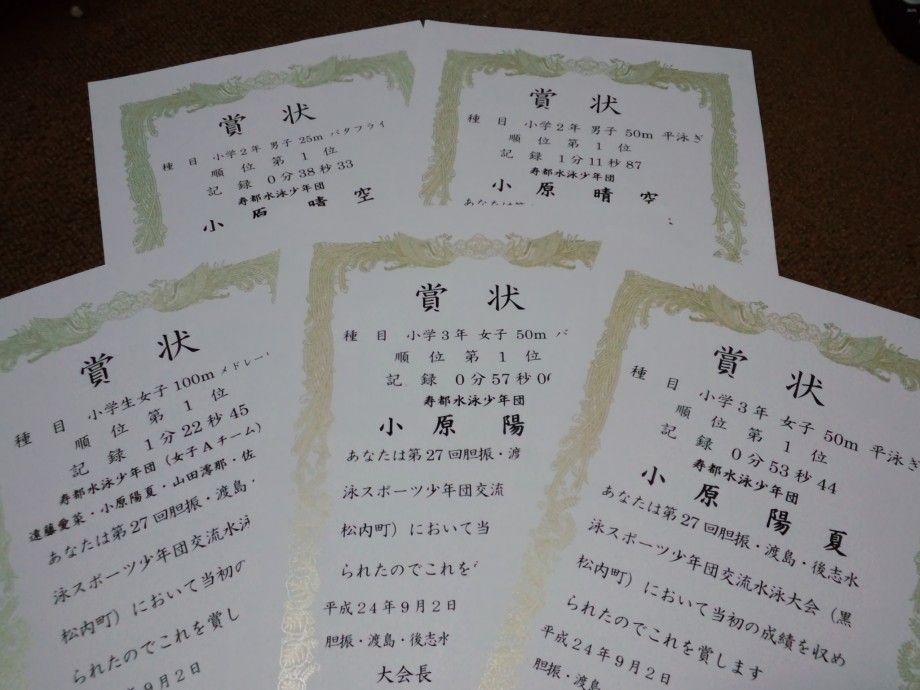 賞状
種目 小学2年 男子 25m バタフライ
順位 第1位
記録 0分38秒33
寿都水泳少年団
小原 晴空
賞状
種目 小学2年 男子 50m 平泳ぎ
順位 第1位
記録 1分11秒87
寿都水泳少年団
小原 晴空
あなたは第
賞状
種目 小学生女子100mメドレー
順位 第1位
記録 1分22秒45
寿都水泳少年団(女子Aチーム)
遠藤愛菜・小原陽夏・山田澪那・佐
あなたは第27回胆振・渡島・
泳スポーツ少年団交流水泳
松内町)において当初の
られたのでこれを賞し
年9月2日
賞状
種目 小学3年 女子 50m バ
順位 第1位
記録 0分57秒0
寿都水泳少年団
小原 陽
あなたは第27回胆振・渡
泳スポーツ少年団交流
松内町)において当
られたのでこれを
平成24年9月2日
胆振・渡島・後志水
大会長
賞状
種目 小学3年 女子 50m 平泳ぎ
順位 第1位
記録 0分53秒44
寿都水泳少年団
小原 陽夏
あなたは第27回胆振・渡島・後志水
泳スポーツ少年団交流水泳大会(黒
松内町)において当初の成績を収め
られたのでこれを賞します
平成24年9月2日
胆振・渡島・後志